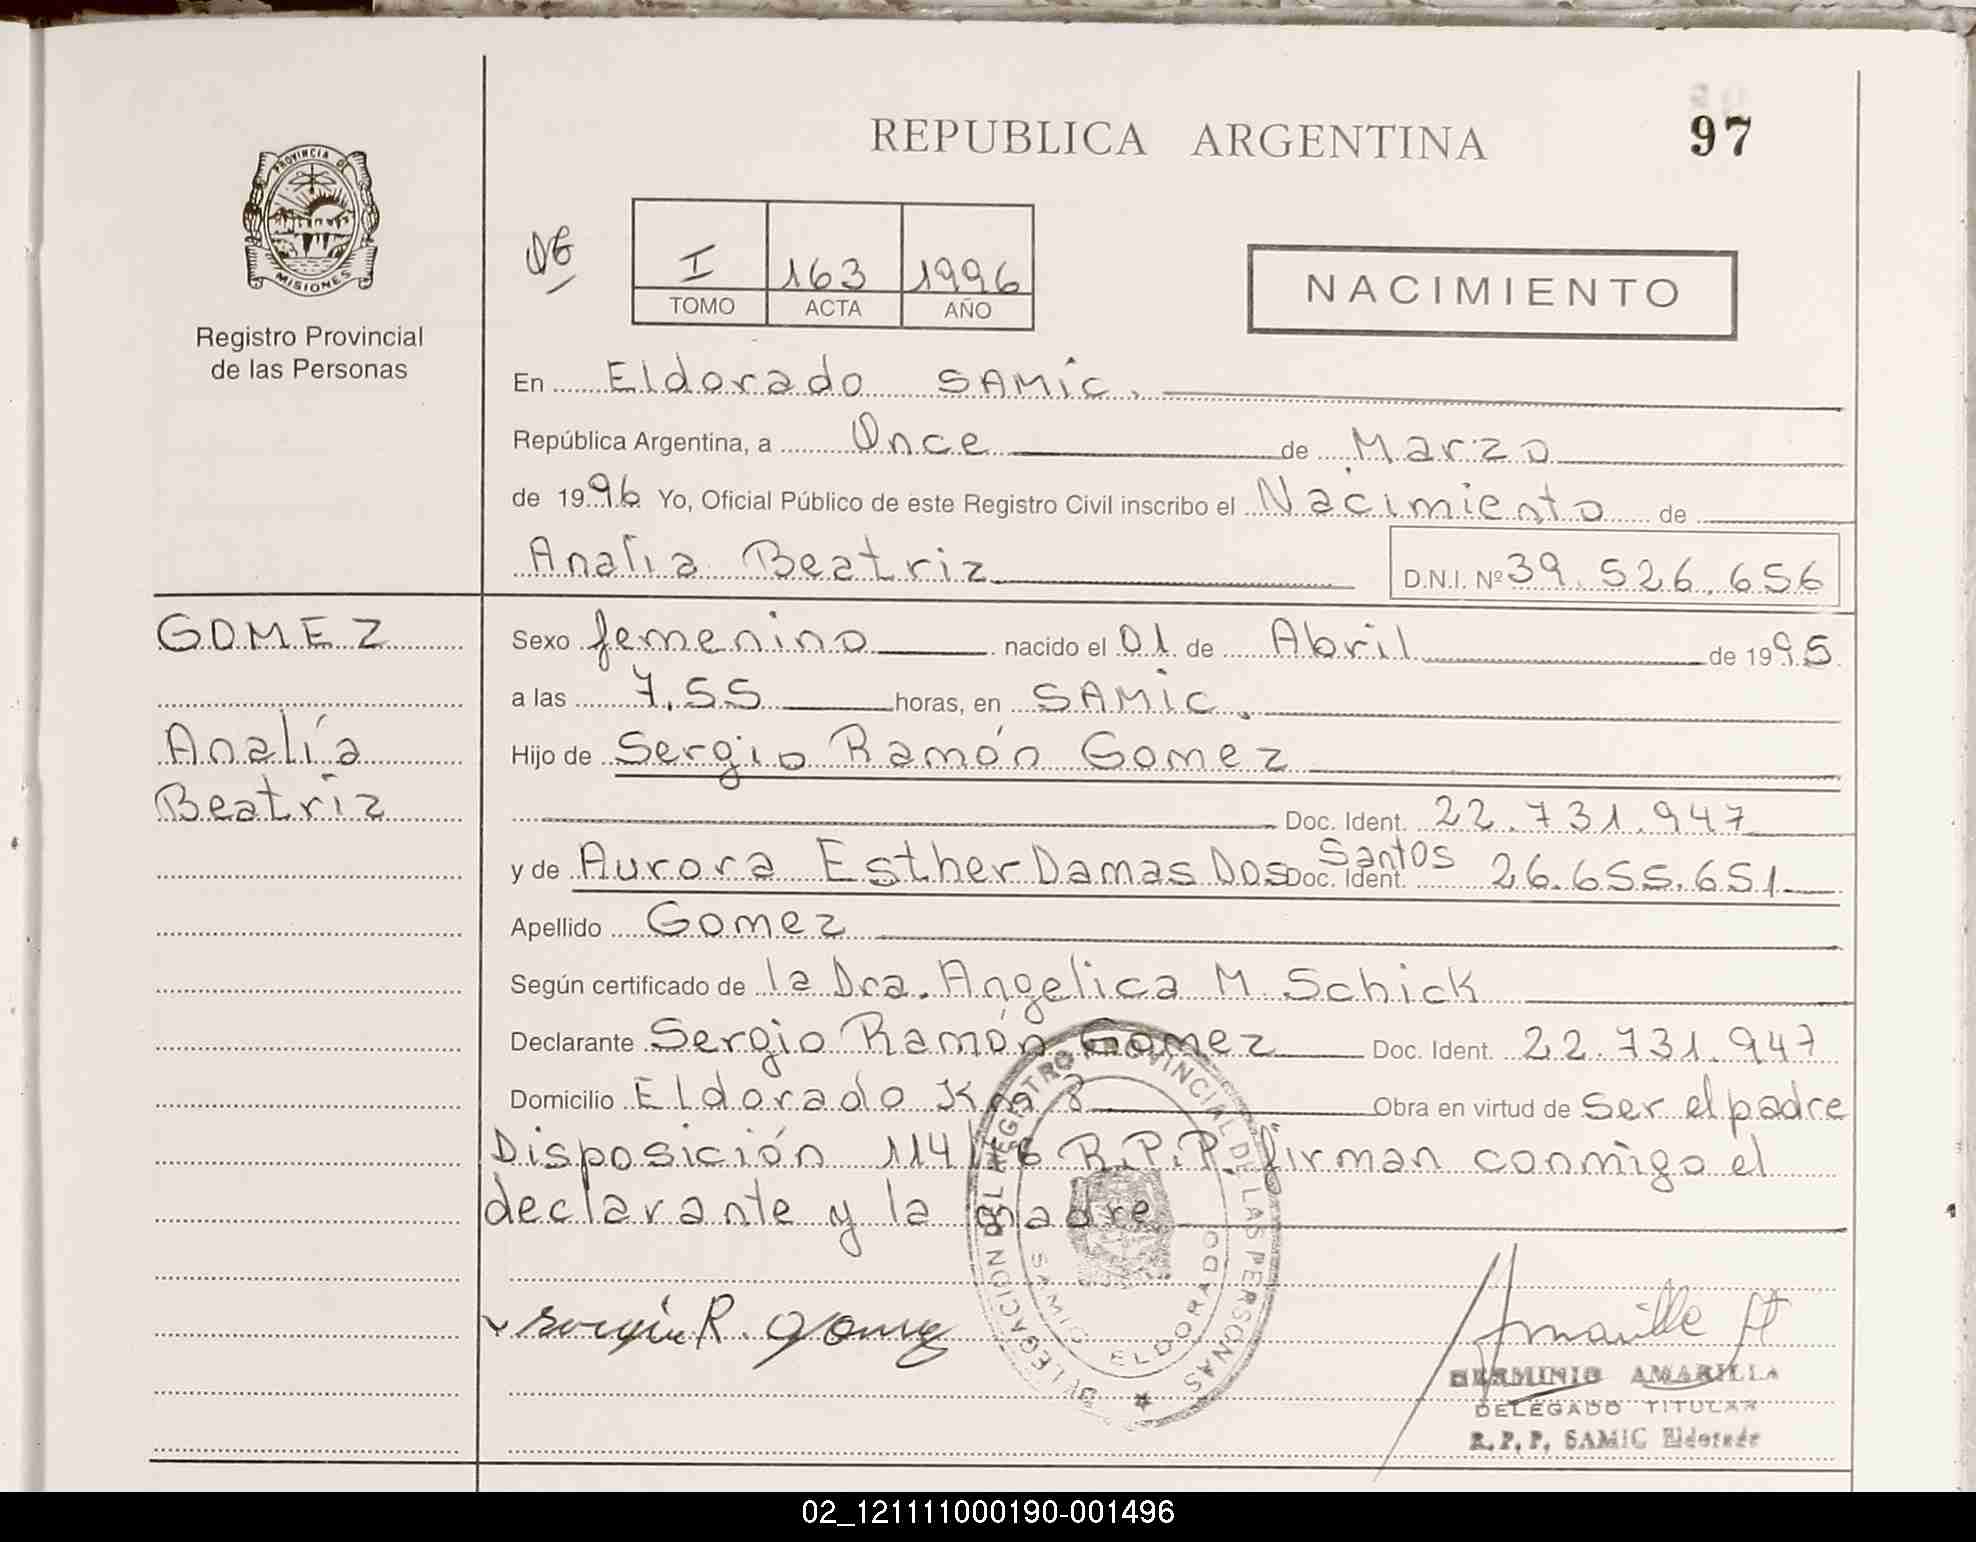 REPUBLICA ARGENTINA
97
PROVINCIA DE
MISIONES
Registro Provincial
de las Personas
I 163 1996
TOMO ACTA AÑO
NACIMIENTO
En Eldorado SAMIC.
República Argentina, a Once de Marzo
de 1996 Yo, Oficial Público de este Registro Civil inscribo el Nacimiento de
Analía Beatriz D.N.I. Nº 39.526.656
GOMEZ
Analía
Beatriz
Sexo femenino nacido el 01 de Abril de 1995
a las 7.55 horas, en SAMIC.
Hijo de Sergio Ramón Gomez
Doc. Ident. 22.731.947
y de Aurora Esther Damas Dos Santos Doc. Ident. 26.655.651
Apellido Gomez
Según certificado de la Dra. Angelica M. Schick
Declarante Sergio Ramón Gomez Doc. Ident. 22.731.947
Domicilio Eldorado Km 8 Obra en virtud de Ser el padre
Disposición 114/ R.P.P. firman conmigo el
declarante y la madre
DELEGACION DEL REGISTRO PROVINCIAL DE LAS PERSONAS
SAMIC ELDORADO
Sergio R. Gomez
HERMINIO AMARILLA
DELEGADO TITULAR
R.P.P. SAMIC Eldorado
02_121111000190-001496